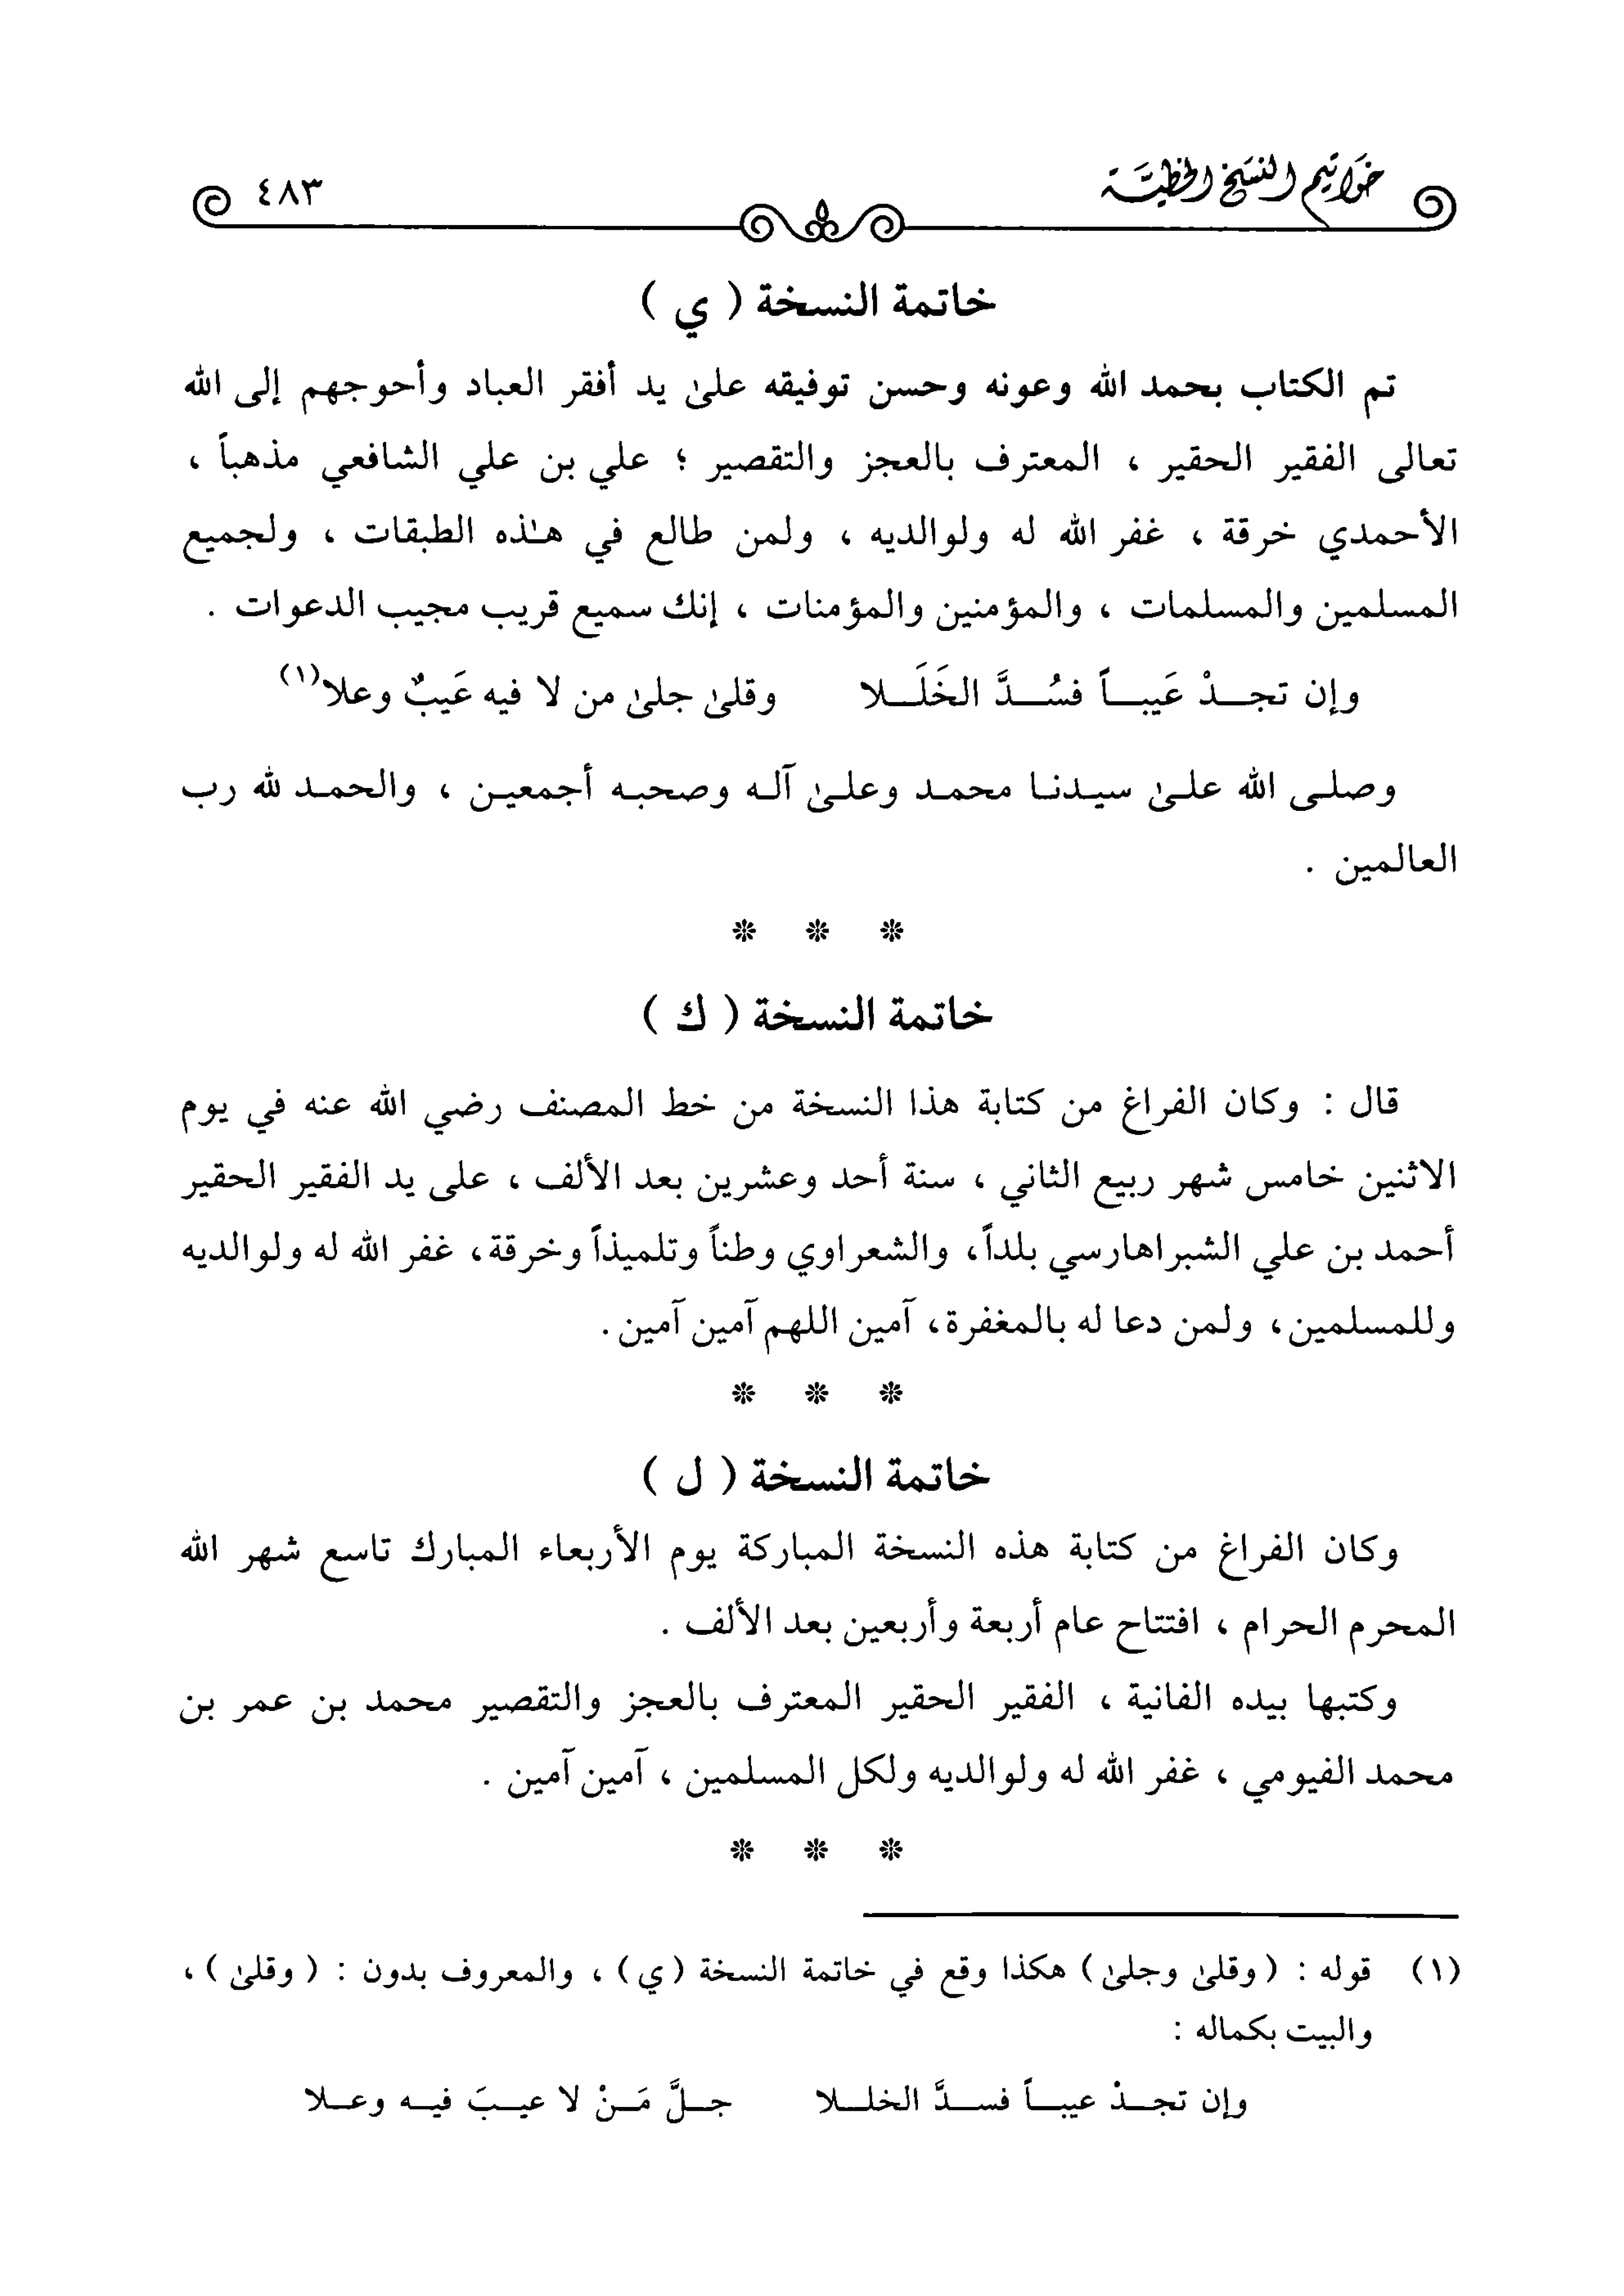 خواتيم النسخ الخطية ٤٨٣
خاتمة النسخة ( ي )
تم الكتاب بحمد الله وعونه وحسن توفيقه علىٰ يد أفقر العباد وأحوجهم إلى الله
تعالى الفقير الحقير ، المعترف بالعجز والتقصير ؛ علي بن علي الشافعي مذهباً ،
الأحمدي خرقة ، غفر الله له ولوالديه ، ولمن طالع في هـٰذه الطبقات ، ولجميع
المسلمين والمسلمات ، والمؤمنين والمؤمنات ، إنك سميع قريب مجيب الدعوات .
وإن تجـدْ عَيبـاً فسُـدَّ الخَلَـلا وقلىٰ جلىٰ من لا فيه عَيبٌ وعلا(١)
وصلـى الله علـىٰ سيـدنـا محمـد وعلـىٰ آلـه وصحبـه أجمعيـن ، والحمـد لله رب
العالمين .
* * *
خاتمة النسخة ( ك )
قال : وكان الفراغ من كتابة هذا النسخة من خط المصنف رضي الله عنه في يوم
الاثنين خامس شهر ربيع الثاني ، سنة أحد وعشرين بعد الألف ، على يد الفقير الحقير
أحمد بن علي الشبراهارسي بلداً، والشعراوي وطناً وتلميذاً وخرقة، غفر الله له ولوالديه
وللمسلمين، ولمن دعا له بالمغفرة، آمين اللهم آمين آمين .
* * *
خاتمة النسخة ( ل )
وكان الفراغ من كتابة هذه النسخة المباركة يوم الأربعاء المبارك تاسع شهر الله
المحرم الحرام ، افتتاح عام أربعة وأربعين بعد الألف .
وكتبها بيده الفانية ، الفقير الحقير المعترف بالعجز والتقصير محمد بن عمر بن
محمد الفيومي ، غفر الله له ولوالديه ولكل المسلمين ، آمين آمين .
* * *
(١) قوله : ( وقلىٰ وجلىٰ ) هكذا وقع في خاتمة النسخة ( ي ) ، والمعروف بدون : ( وقلىٰ ) ،
والبيت بكماله :
وإن تجـدْ عيبـاً فسـدَّ الخلـلا جـلَّ مَـنْ لا عيـبَ فيـه وعـلا